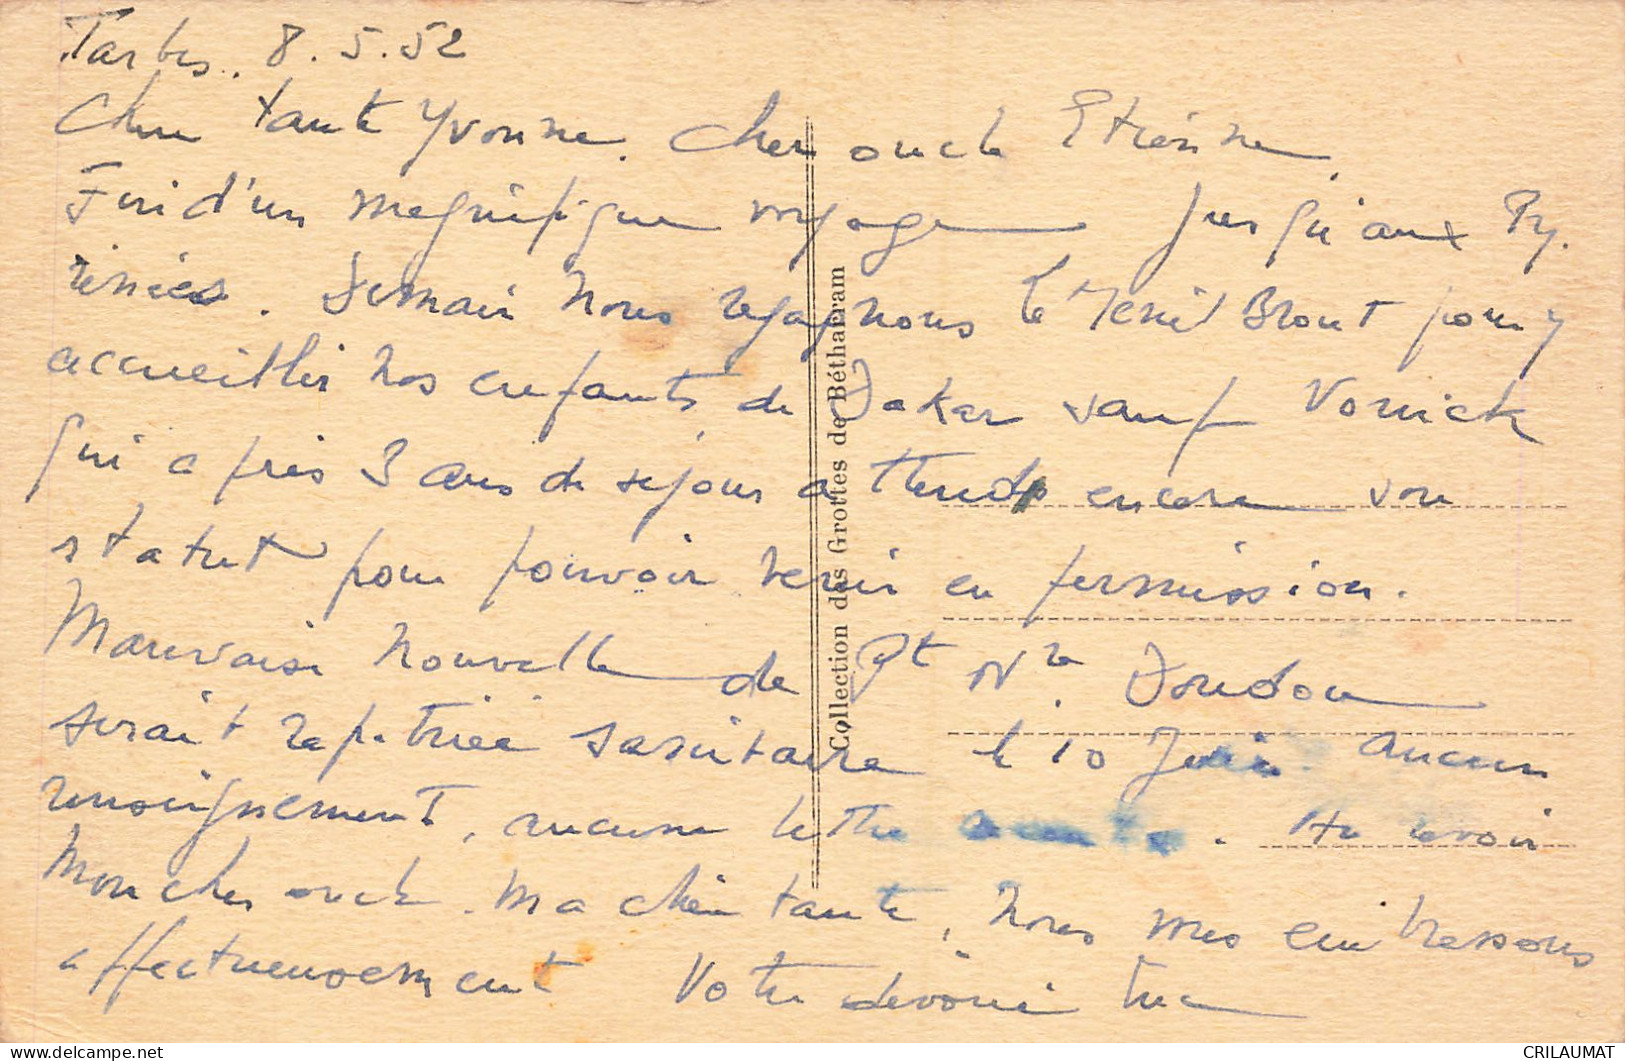 Tarbes. 8.5.52
Chère tante Yvonne. Cher oncle Etienne.
Fini d'un magnifique voyage jusqu'aux Py.
rénées. Demain nous regagnons le Mesnil Brout pour y
accueillir nos enfants de Dakar sauf Vonick
qui après 3 ans de séjour attends encore son
statut pour pouvoir venir en permission.
Mauvaise nouvelle de Pt Nre.
serait rapatriée sanitaire le 10 Juin. aucun
renseignement, aucune lettre . Au revoir
Mon cher oncle. Ma chère tante, nous vous embrassons
affectueusement Votre dévoué
Collection des Grottes de Bétharram
CRILAUMAT